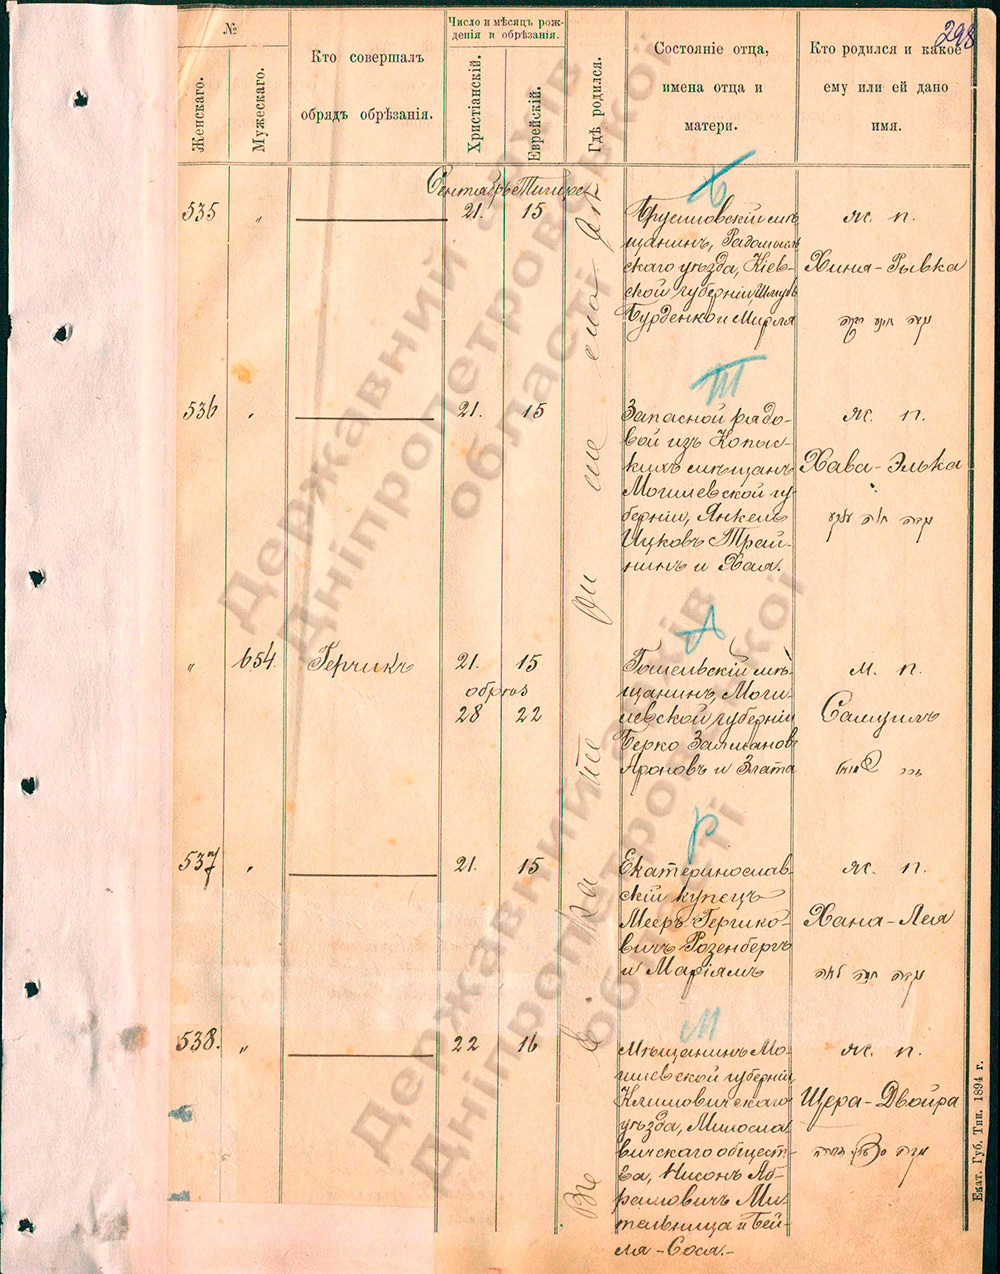 298
№
Женскаго.
Мужескаго.
Кто совершалъ
обрядъ обрѣзанія.
Число и мѣсяцъ рож-
денія и обрѣзанія.
Христіанскій.
Еврейскій.
Гдѣ родился.
Состояніе отца,
имена отца и
матери.
Кто родился и какое
ему или ей дано
имя.
Сентябрь Тишре
535
"
21.
15
Брусиловскій мѣ-
щанинъ, Радомысль
скаго уѣзда, Кіев-
ской губерніи Шмуль
Бурденко и Мирля
ж. п.
Хиня-Рывка
536
"
21.
15
Запасной рядо-
вой изъ Копыс-
кихъ мѣщанъ
Могилевской гу-
берніи, Янкель
Ицковъ Трей-
нинъ и Хая.
ж. п.
Хава-Элька
"
654
Герчикъ
21.
15
обрѣз
28
22
Гомельскій мѣ-
щанинъ, Моги-
левской губерніи
Берко Залмановъ
Ароновъ и Злата
м. п.
Самуилъ
537
"
21.
15
Екатеринослав-
скій купецъ
Мееръ Герцико-
вичъ Розенбергъ
и Маріямъ
ж. п.
Хана-Лея
538.
"
22
16
Мѣщанинъ Мо-
гилевской губерніи,
Климовичскаго
уѣзда, Милосла
вичскаго общест-
ва, Нисонъ Аб-
рамовичъ Ми-
тельница и Бей-
ля-Соса.-
ж. п.
Щера-Двойра
Екат. Губ. Тип. 1894 г.
Державний архів
Дніпропетровської
області
Державний архів
Дніпропетровської
області